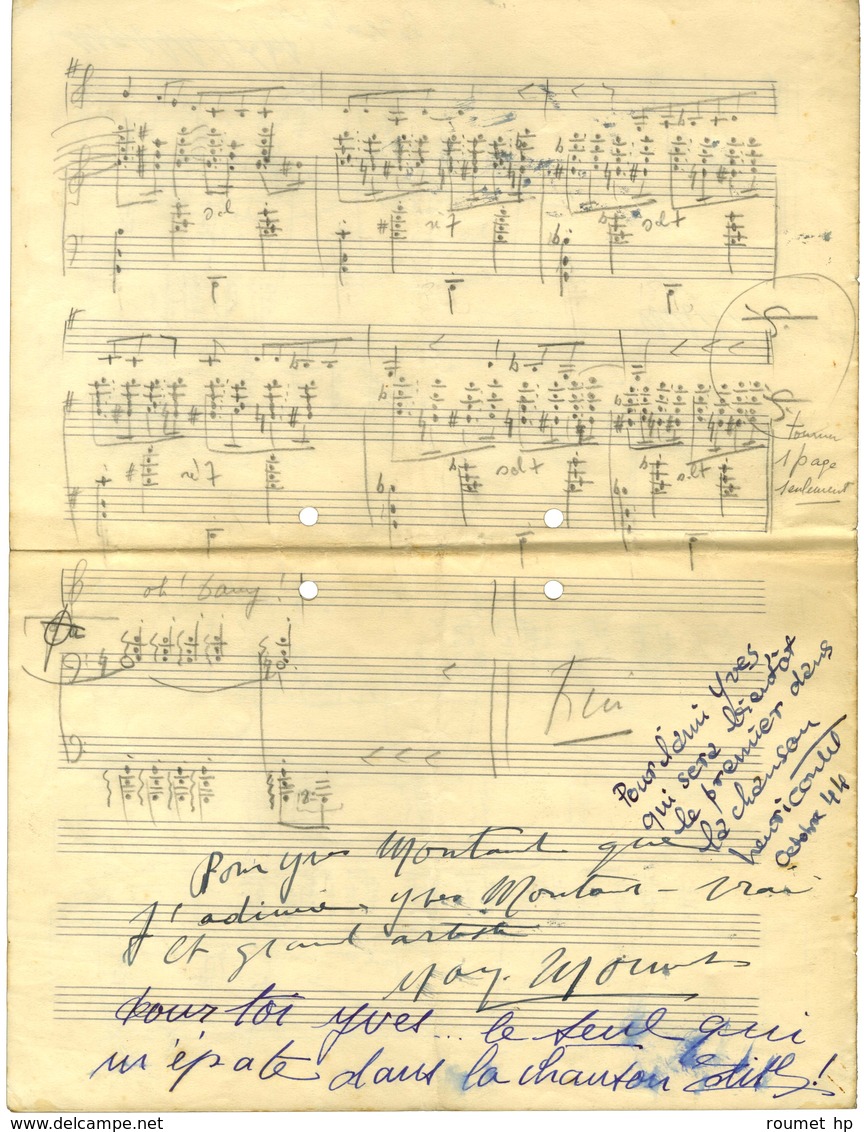 sol
ré 7
sol 7
ré 7
sol 7
si 7
tourner
1 page
seulement
oh! bang!
Fin
Pour l'ami Yves
qui sera bientôt
le premier dans
la chanson
henri contet
Octobre 44
Pour Yves Montant que
J'admire. Yves Montant - vrai
et grand artiste
pour toi Yves... le seul qui
m'épate dans la chanson Edith!
roumet hp